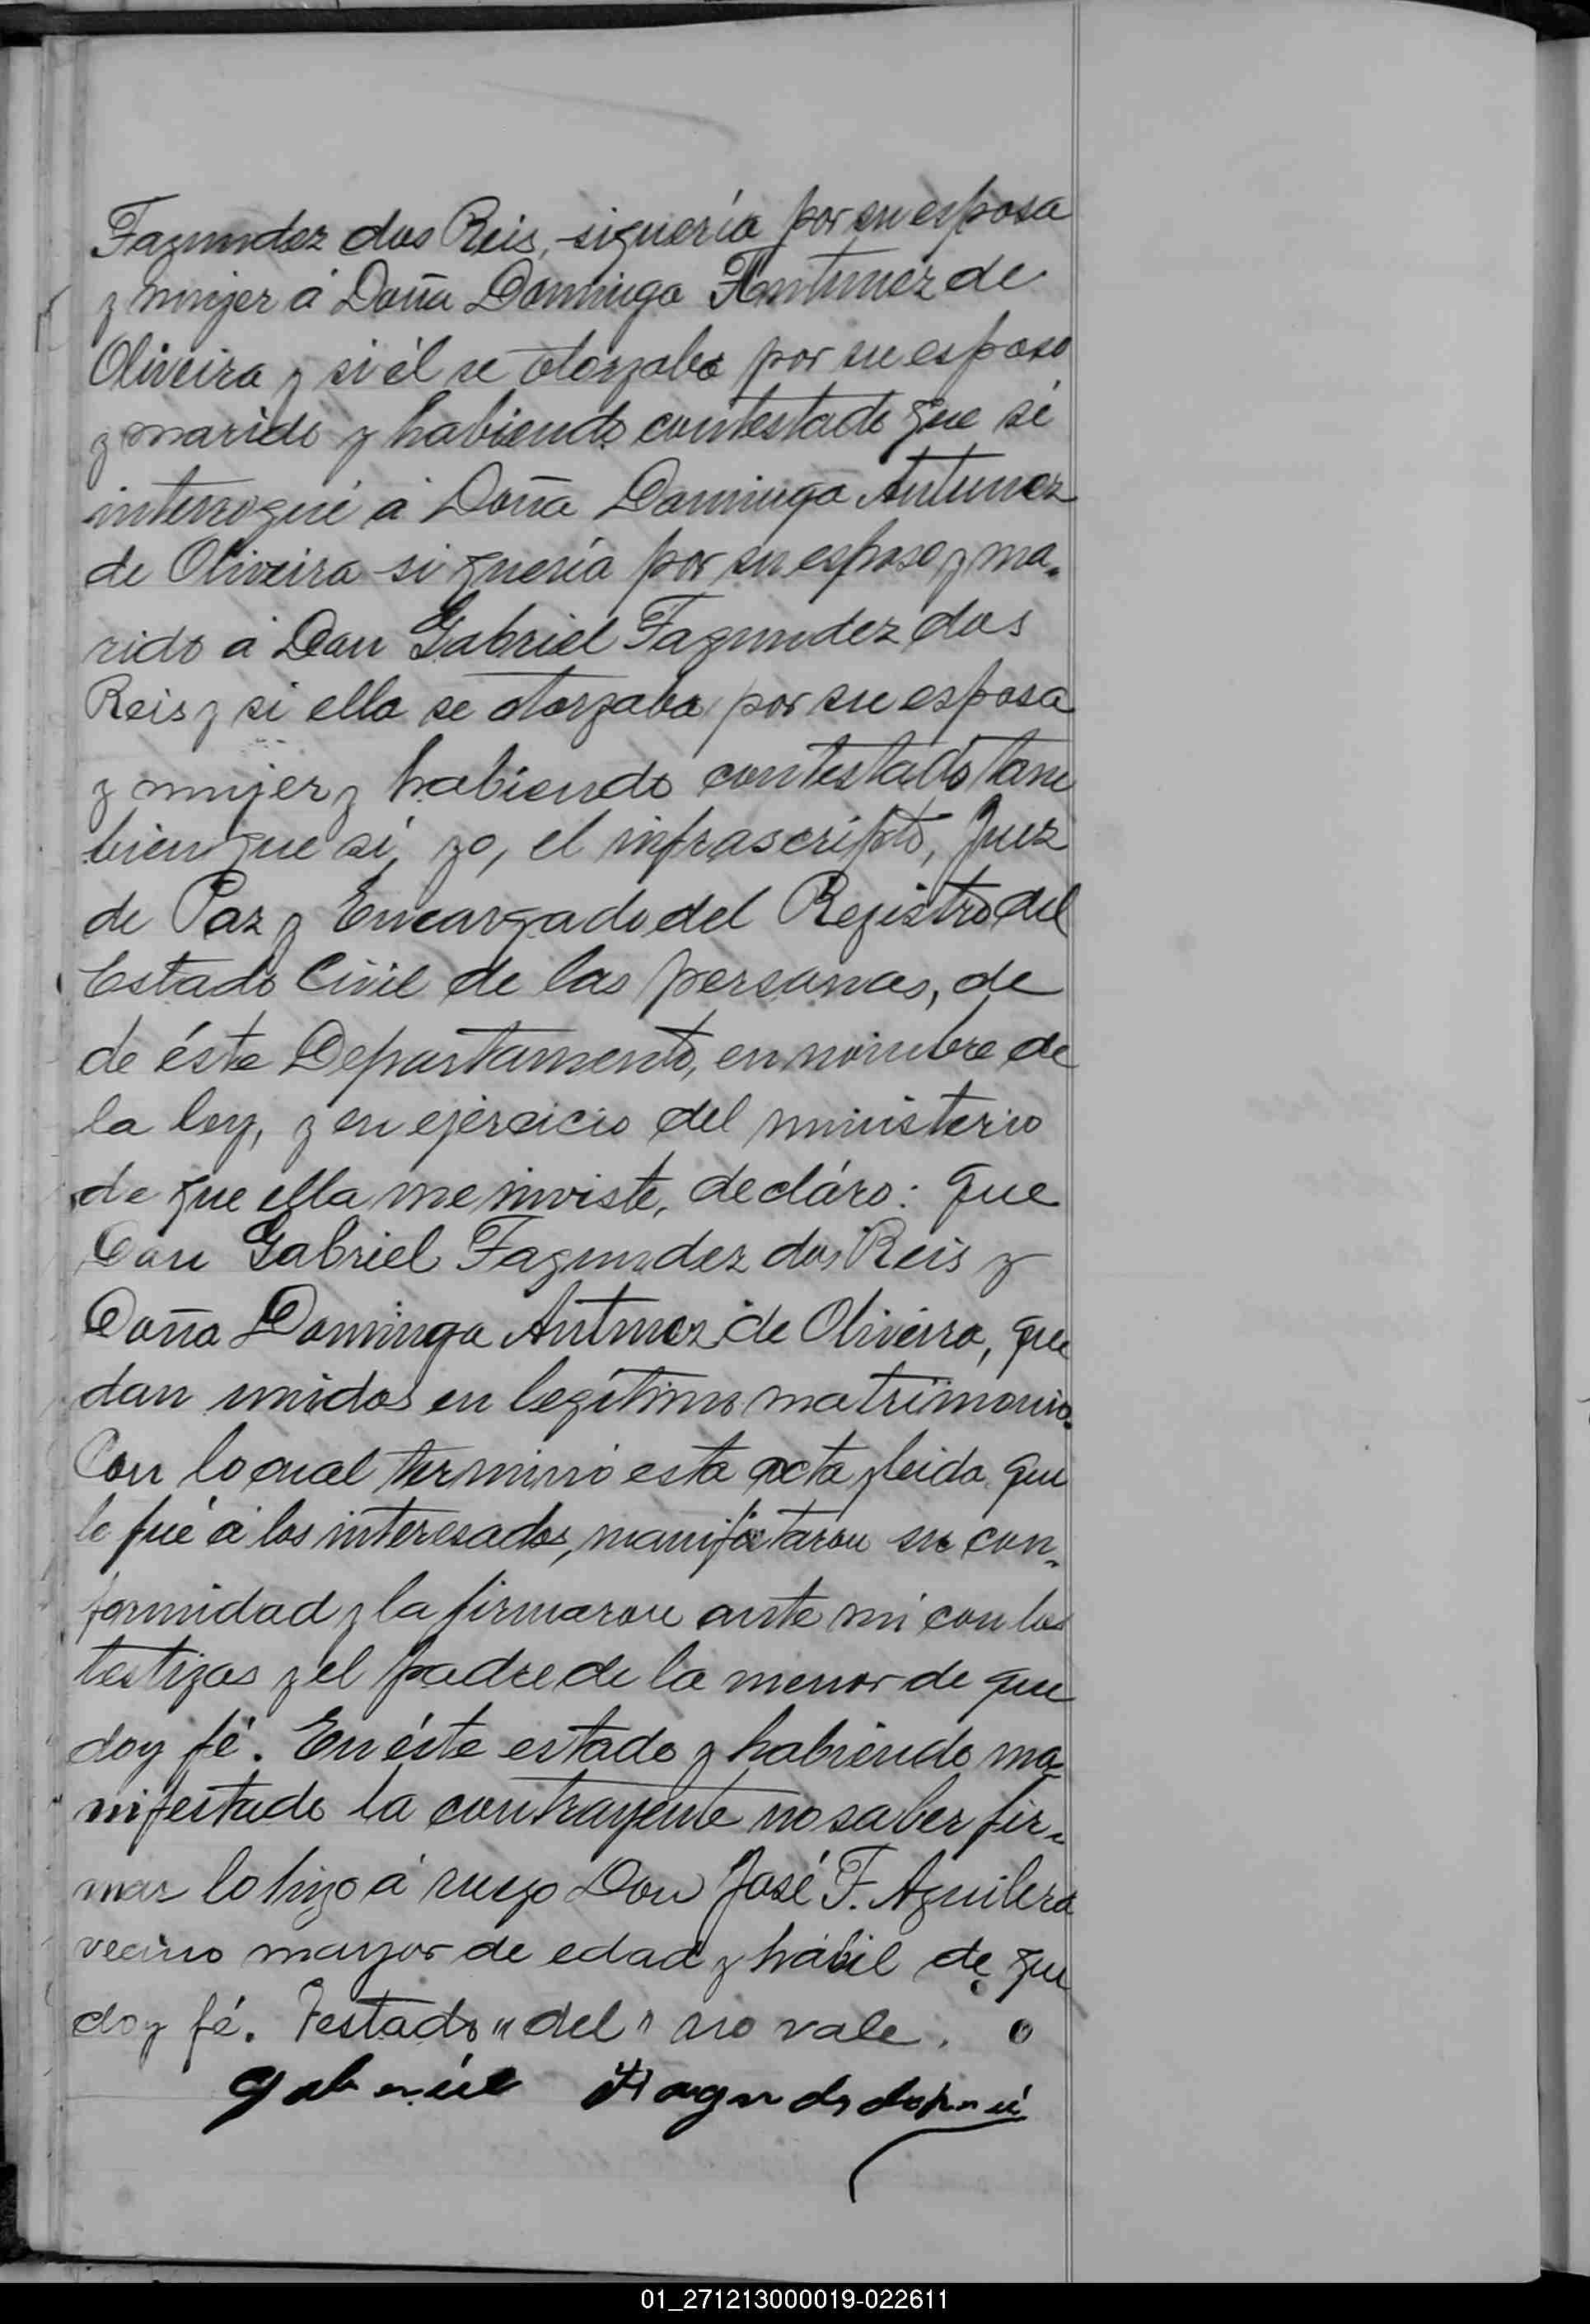 Fagundez dos Reis, si quería por su esposa
y mujer á Doña Dominga Antunez de
Oliveira y si él se otorgaba por su esposo
y marido y habiendo contestado que sí
interrogué á Doña Dominga Antunez
de Oliveira si quería por su esposo y ma-
rido á Don Gabriel Fagundez dos
Reis y si ella se otorgaba por su esposa
y mujer y habiendo contestado tam
bien que sí, yo, el infrascripto, Juez
de Paz y Encargado del Registro del
Estado Civil de las personas, de
de éste Departamento, en nombre de
la ley, y en ejercicio del ministerio
de que ella me inviste, decláro: que
Don Gabriel Fagundez dos Reis y
Doña Dominga Antunez de Oliveira, que
dan unidos en legítimo matrimonio.
Con lo cual terminó esta acta y leida que
le fué á los interesados, manifestaron su con-
formidad y la firmaron ante mi con los
testigos y el padre de la menor de que
doy fé. En éste estado y habiendo ma-
nifestado la contrayente no saber fir-
mar lo hizo á ruego Don José F. Aguilera
vecino mayor de edad y hábil de que
doy fé. Testado "del" no vale.
Gabriel
01_271213000019-022611